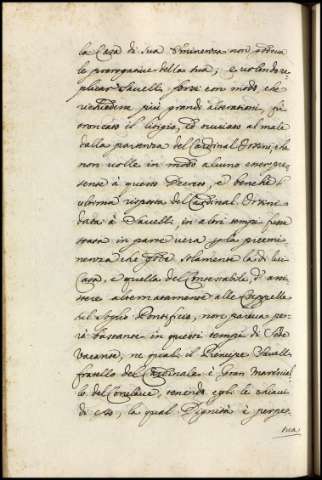 la Casa di sua Eminenza non aveva
le prerogative della sua; e volendo re,
plicar Savelli forsi con modo, che
richiedeva più grandi alterationi, fù
troncato il litigio, ed ovviato al male
dalla partenza del Cardinal Orsini, che
non volle in modo alcuno esser pre,
sente à questo Decreto, e benche l'
ultima risposta del Cardinal Orsini
data à Savelli, in altri tempi fusse
stata in parte vera per la preemi
nenza che solamente la di lui
Casa, e quella del Contestabile, d' assi,
stere alternatamente alle Cappelle
del Soglio Pontificio, non pareva per,
rò bastante in questi tempi di Sede
Vacante, ne quali il Prencipe Savelli
fratello del Cardinale è Gran Marescial,
lo del Conclave, tenendo egli le chiavi
di esso, la qual Dignità è perpe,
tua